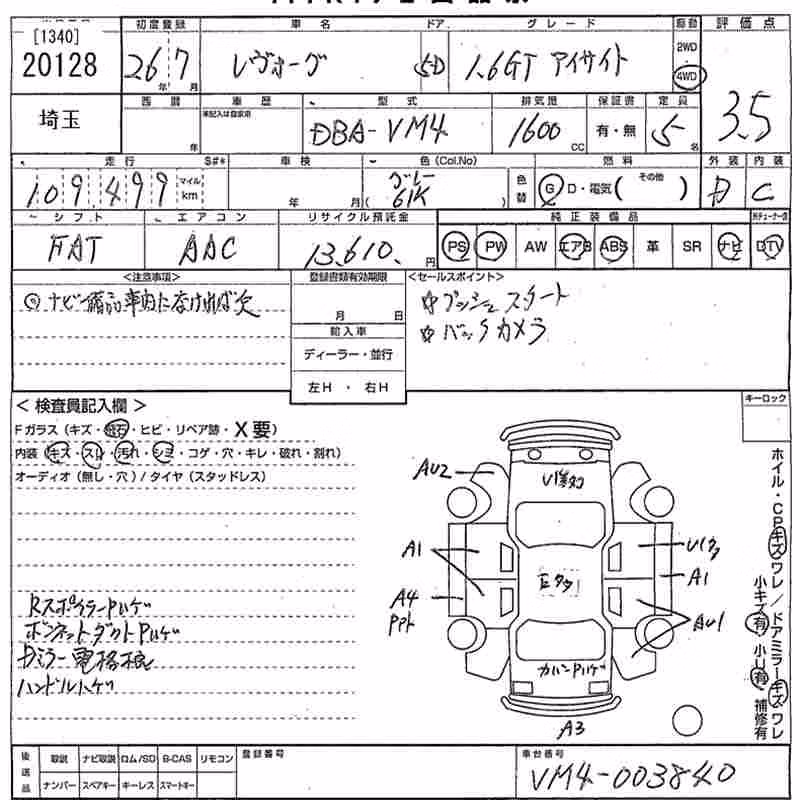 [1340]
20128
初度登録 車名 ドア グレード 駆動 評価点
26年 7月 レヴォーグ 5D 1.6GT アイサイト 2WD 4WD 3.5
埼玉
西暦 車歴 型式 排気量 保証書 定員
年 未記入は自家用 DBA-VM4 1600CC 有・無 5名
走行 S#* 車検 色(Col.No) 燃料 外装 内装
109,499 マイル km 年 月 グレー 61K 色替 G D・電気( その他 ) D C
シフト エアコン リサイクル預託金 純正装備品
FAT AAC 13,610.円 PS PW AW エアB ABS 革 SR ナビ DTV
<注意事項> 登録書類有効期限 <セールスポイント>
◎ナビ備品車内になければ欠
月 日
輸入車
ディーラー・並行
左H・右H
☆プッシュスタート
☆バックカメラ
<検査員記入欄>
Fガラス(キズ・飛石・ヒビ・リペア跡・X要)
内装(キズ・スレ・汚れ・シミ・コゲ・穴・キレ・破れ・割れ)
オーディオ(無し・穴)/タイヤ(スタッドレス)
Rスポイラー Pハゲ
ボンネットダクトPハゲ
Dミラー電格
ハンドルハゲ
キーロック
ホイル・CPキズワレ/ドアミラーキズワレ
小キズ有 小U有 補修有
AU2
A1
A4
A1
AU1
カバーPハゲ
A3
後送品 取説 ナビ取説 ロム/SD B-CAS リモコン
ナンバー スペアキー キーレス スマートキー
登録番号
車台番号
VM4-003840